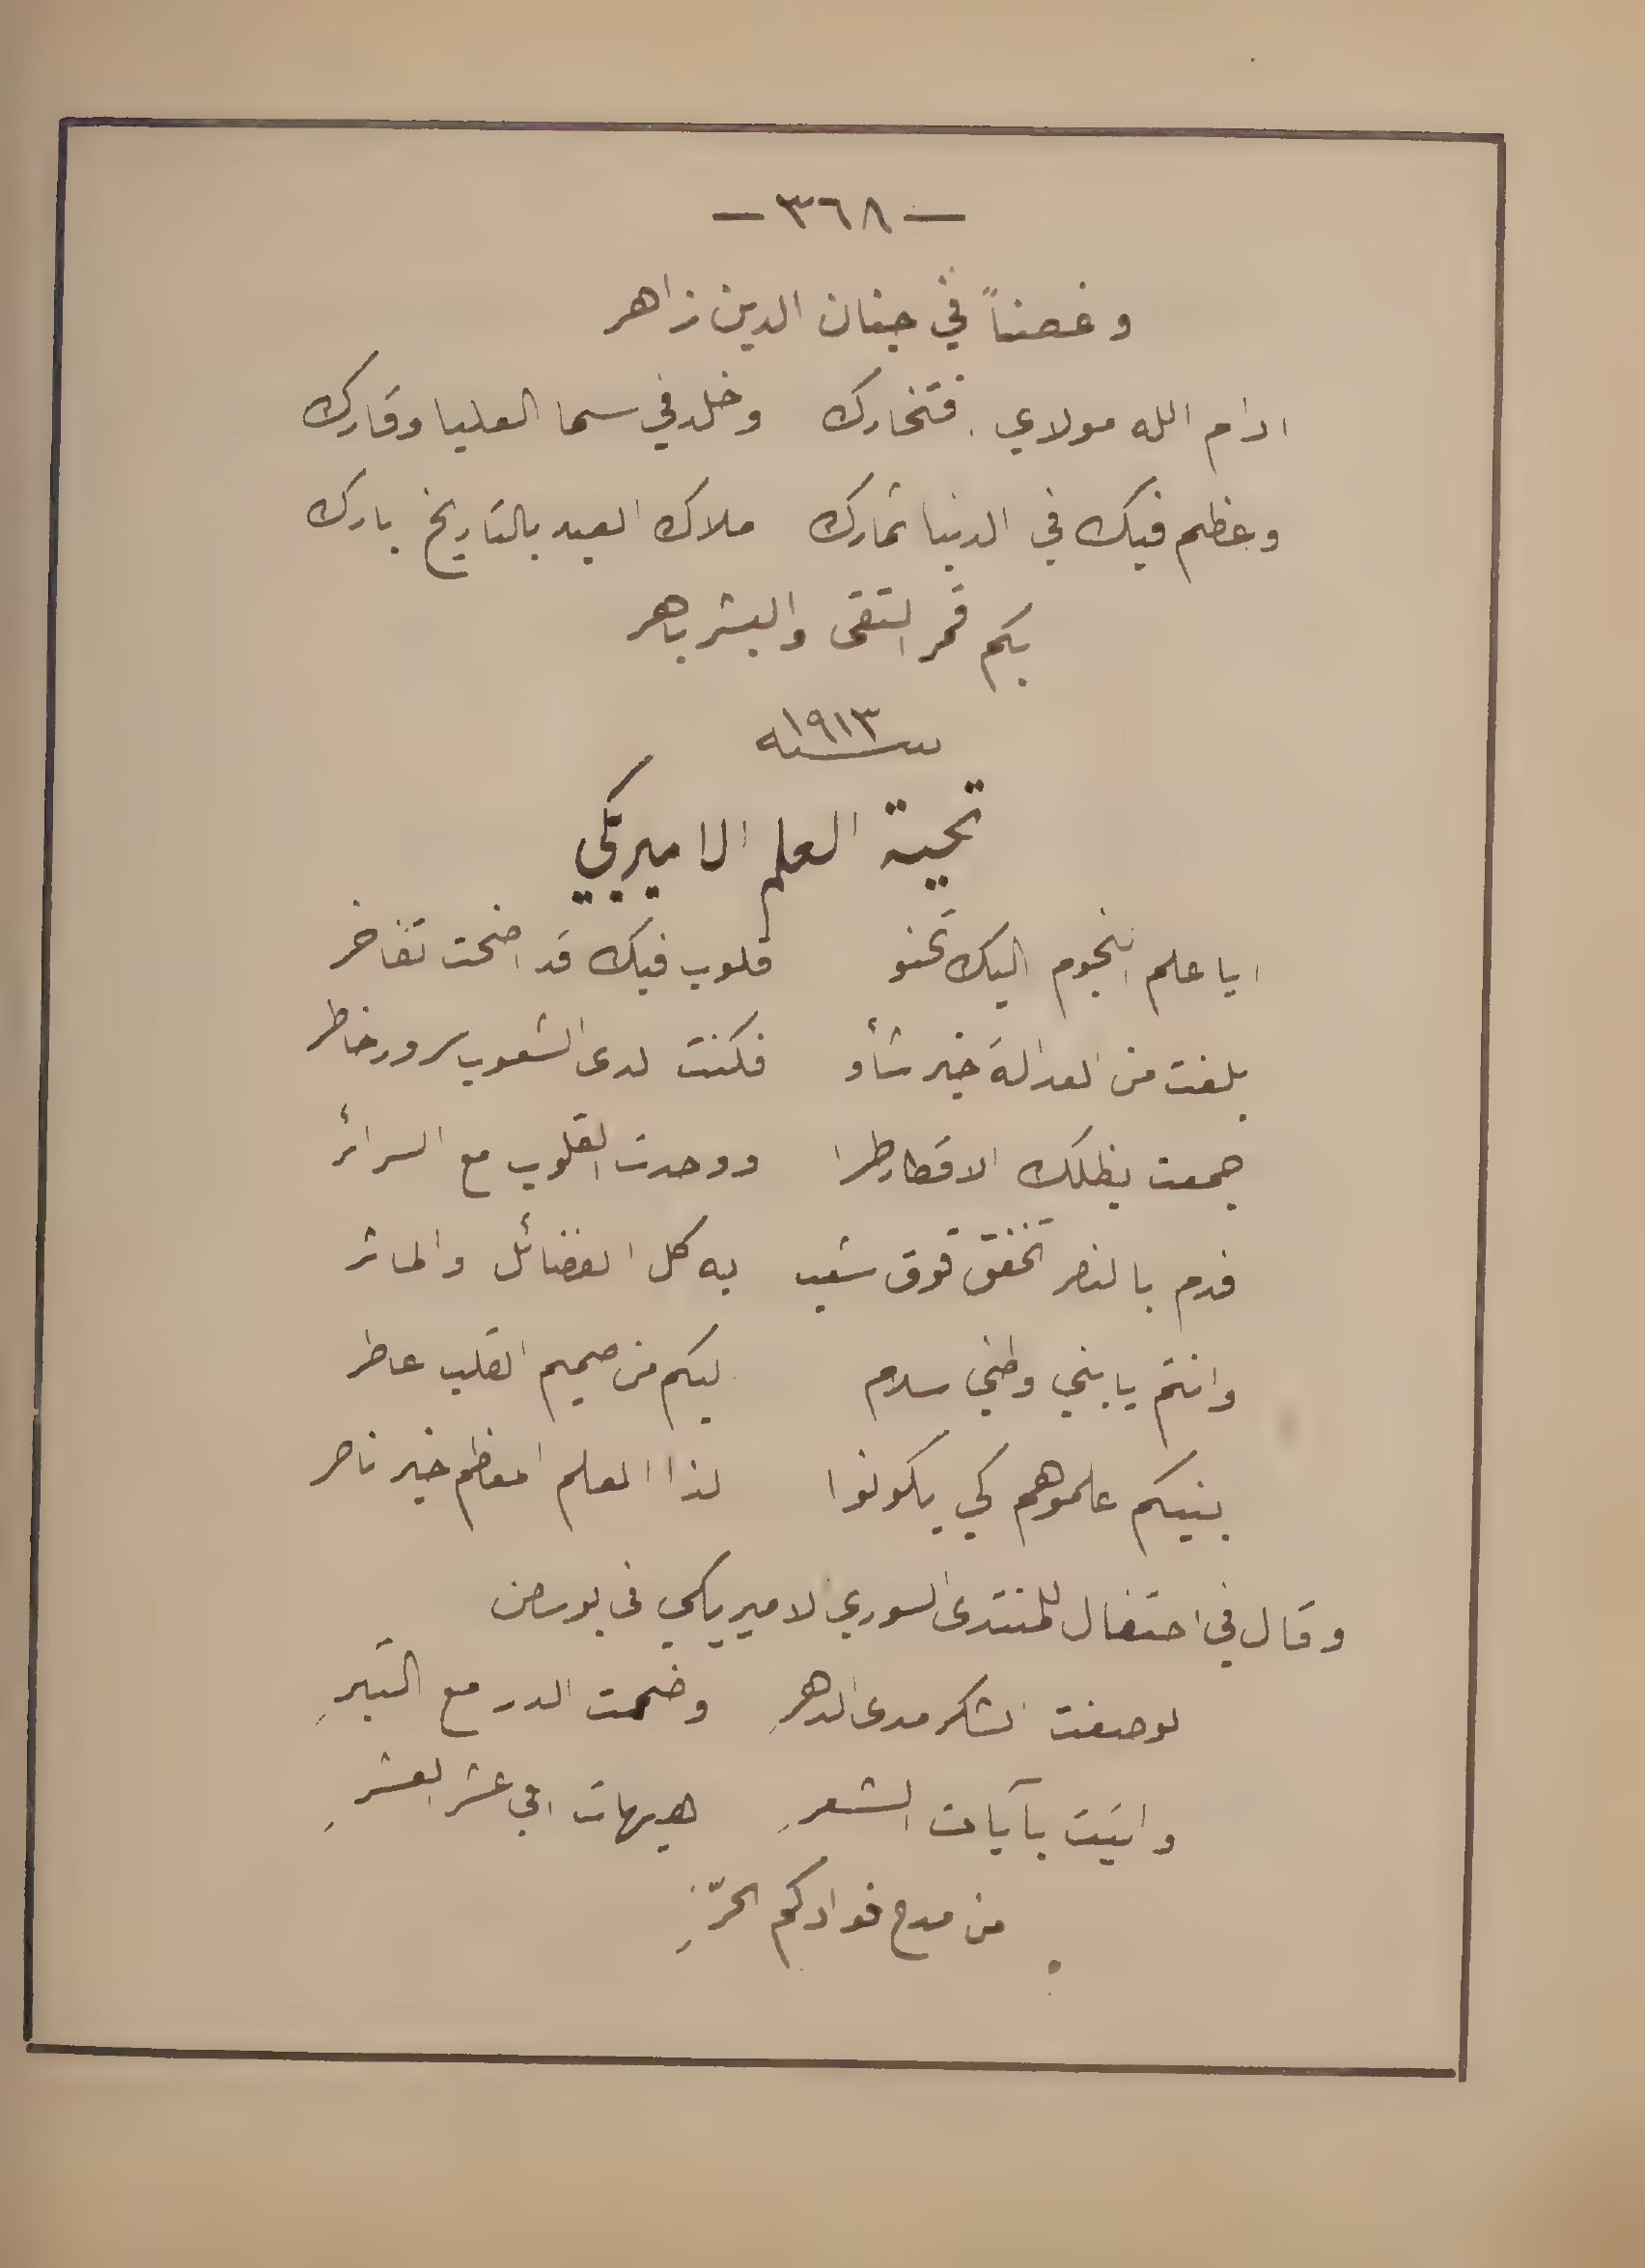 — ٣٦٨ —
وغصناً في جنان الدين زاهر
ادام الله مولاي فتخارك وخلد في سما العليا وقارك
وعظم فيك في الدنيا ثمارك ملاك العيد بالتاريخ بارك
بكم قمر التقى والبشر باهر
سنة ١٩١٣
تحية العلم الاميركي
ايا علم النجوم اليك تحنو قلوب فيك قد اضحت تفاخر
بلغت من العدالة خير شأو فكنت لدى الشعوب سرور خاطر
جمعت بظلك الاقطار طرا ووحدت القلوب مع السرائر
فدم بالنصر تخفق فوق شعب به كل الفضائل والماثر
وانتم يا بني وطني سلام ليكم من صميم القلب عاطر
بنيكم علموهم كي يكونوا لذا العلم المعظم خير ناصر
وقال في احتفال للمنتدى السوري الاميريكي في بوسطن
لوصغت الشكر مدى الدهرِ وضممت الدر مع التبرِ
واتيت بآيات الشعرِ هيهات افي عشر العشرِ
من مدح فوادكم الحرِّ